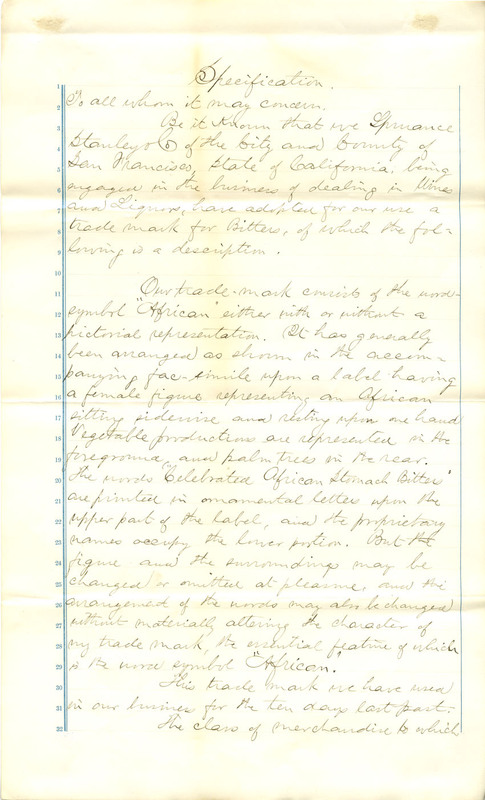 Specification.
To all whom it may concern.
Be it Known that we Spruance
Stanley & Co of the City and County of
San Francisco, State of California, being
engaged in the business of dealing in Wines
and Liquors, have adopted for our use a
trade mark for Bitters, of which the fol-
lowing is a description.
Our trade-mark consists of the word-
symbol "African" either with or without a
pictorial representation. It has generally
been arranged as shown in the accom-
panying fac-simile upon a label having
a female figure representing an African
sitting sidewise and resting upon one hand
Vegetable productions are represented in the
foreground, and palm trees in the rear.
The words "Celebrated African Stomach Bitters"
are printed in ornamental letters upon the
upper part of the label, and the proprietary
names occupy the lower portion. But the
figure and the surroundings may be
changed or omitted at pleasure, and the
arrangement of the words may also be changed
without materially altering the character of
my trade mark, the essential feature of which
is the word symbol "African."
This trade mark we have used
in our business for the ten days last past.
The class of merchandise to which
1
2
3
4
5
6
7
8
9
10
11
12
13
14
15
16
17
18
19
20
21
22
23
24
25
26
27
28
29
30
31
32